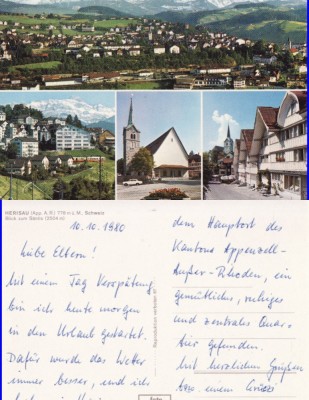 HERISAU (App. A.Rh.) 778 m ü. M., Schweiz
Blick zum Säntis (2504 m)
10.10.1980
Liebe Eltern!
Mit einem Tag Verspätung
bin ich heute morgen
in den Urlaub gestartet.
Dafür wurde das Wetter
immer besser, und ich
dem Hauptort des
Kantons Appenzell-
Außer-Rhoden, ein
gemütliches, ruhiges
und zentrales Quar-
tier gefunden.
Mit herzlichen Grüßen
bzw. einem